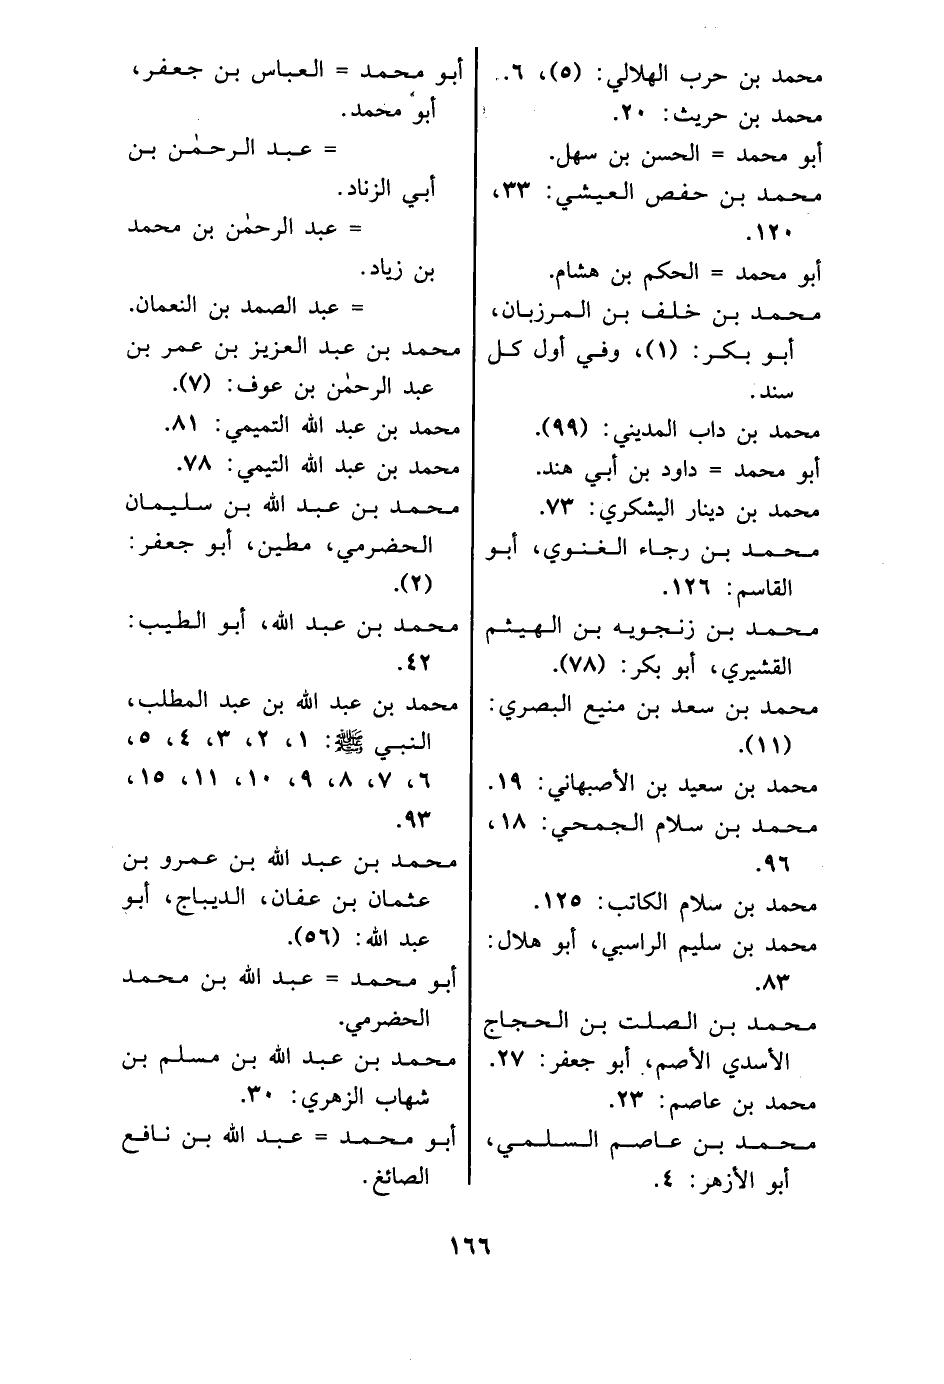 محمد بن حرب الهلالي: (٥)، ٦.
محمد بن حريث: ٢٠.
أبو محمد = الحسن بن سهل.
محمد بن حفص العيشي: ٣٣،
١٢٠.
أبو محمد = الحكم بن هشام.
محمد بن خلف بن المرزبان،
أبو بكر: (١)، وفي أول كل
سند.
محمد بن داب المديني: (٩٩).
أبو محمد = داود بن أبي هند.
محمد بن دينار اليشكري: ٧٣.
محمد بن رجاء الغنوي، أبو
القاسم: ١٢٦.
محمد بن زنجويه بن الهيثم
القشيري، أبو بكر: (٧٨).
محمد بن سعد بن منيع البصري:
(١١).
محمد بن سعيد بن الأصبهاني: ١٩.
محمد بن سلام الجمحي: ١٨،
٩٦.
محمد بن سلام الكاتب: ١٢٥.
محمد بن سليم الراسبي، أبو هلال:
٨٣.
محمد بن الصلت بن الحجاج
الأسدي الأصم، أبو جعفر: ٢٧.
محمد بن عاصم: ٢٣.
محمد بن عاصم السلمي،
أبو الأزهر: ٤.
أبو محمد = العباس بن جعفر،
أبو محمد.
= عبد الرحمٰن بن
أبي الزناد.
= عبد الرحمٰن بن محمد
بن زياد.
= عبد الصمد بن النعمان.
محمد بن عبد العزيز بن عمر بن
عبد الرحمٰن بن عوف: (٧).
محمد بن عبد الله التميمي: ٨١.
محمد بن عبد الله التيمي: ٧٨.
محمد بن عبد الله بن سليمان
الحضرمي، مطين، أبو جعفر:
(٢).
محمد بن عبد الله، أبو الطيب:
٤٢.
محمد بن عبد الله بن عبد المطلب،
النبي ﷺ: ١، ٢، ٣، ٤، ٥،
٦، ٧، ٨، ٩، ١٠، ١١، ١٥،
٩٣.
محمد بن عبد الله بن عمرو بن
عثمان بن عفان، الديباج، أبو
عبد الله: (٥٦).
أبو محمد = عبد الله بن محمد
الحضرمي.
محمد بن عبد الله بن مسلم بن
شهاب الزهري: ٣٠.
أبو محمد = عبد الله بن نافع
الصائغ.
١٦٦